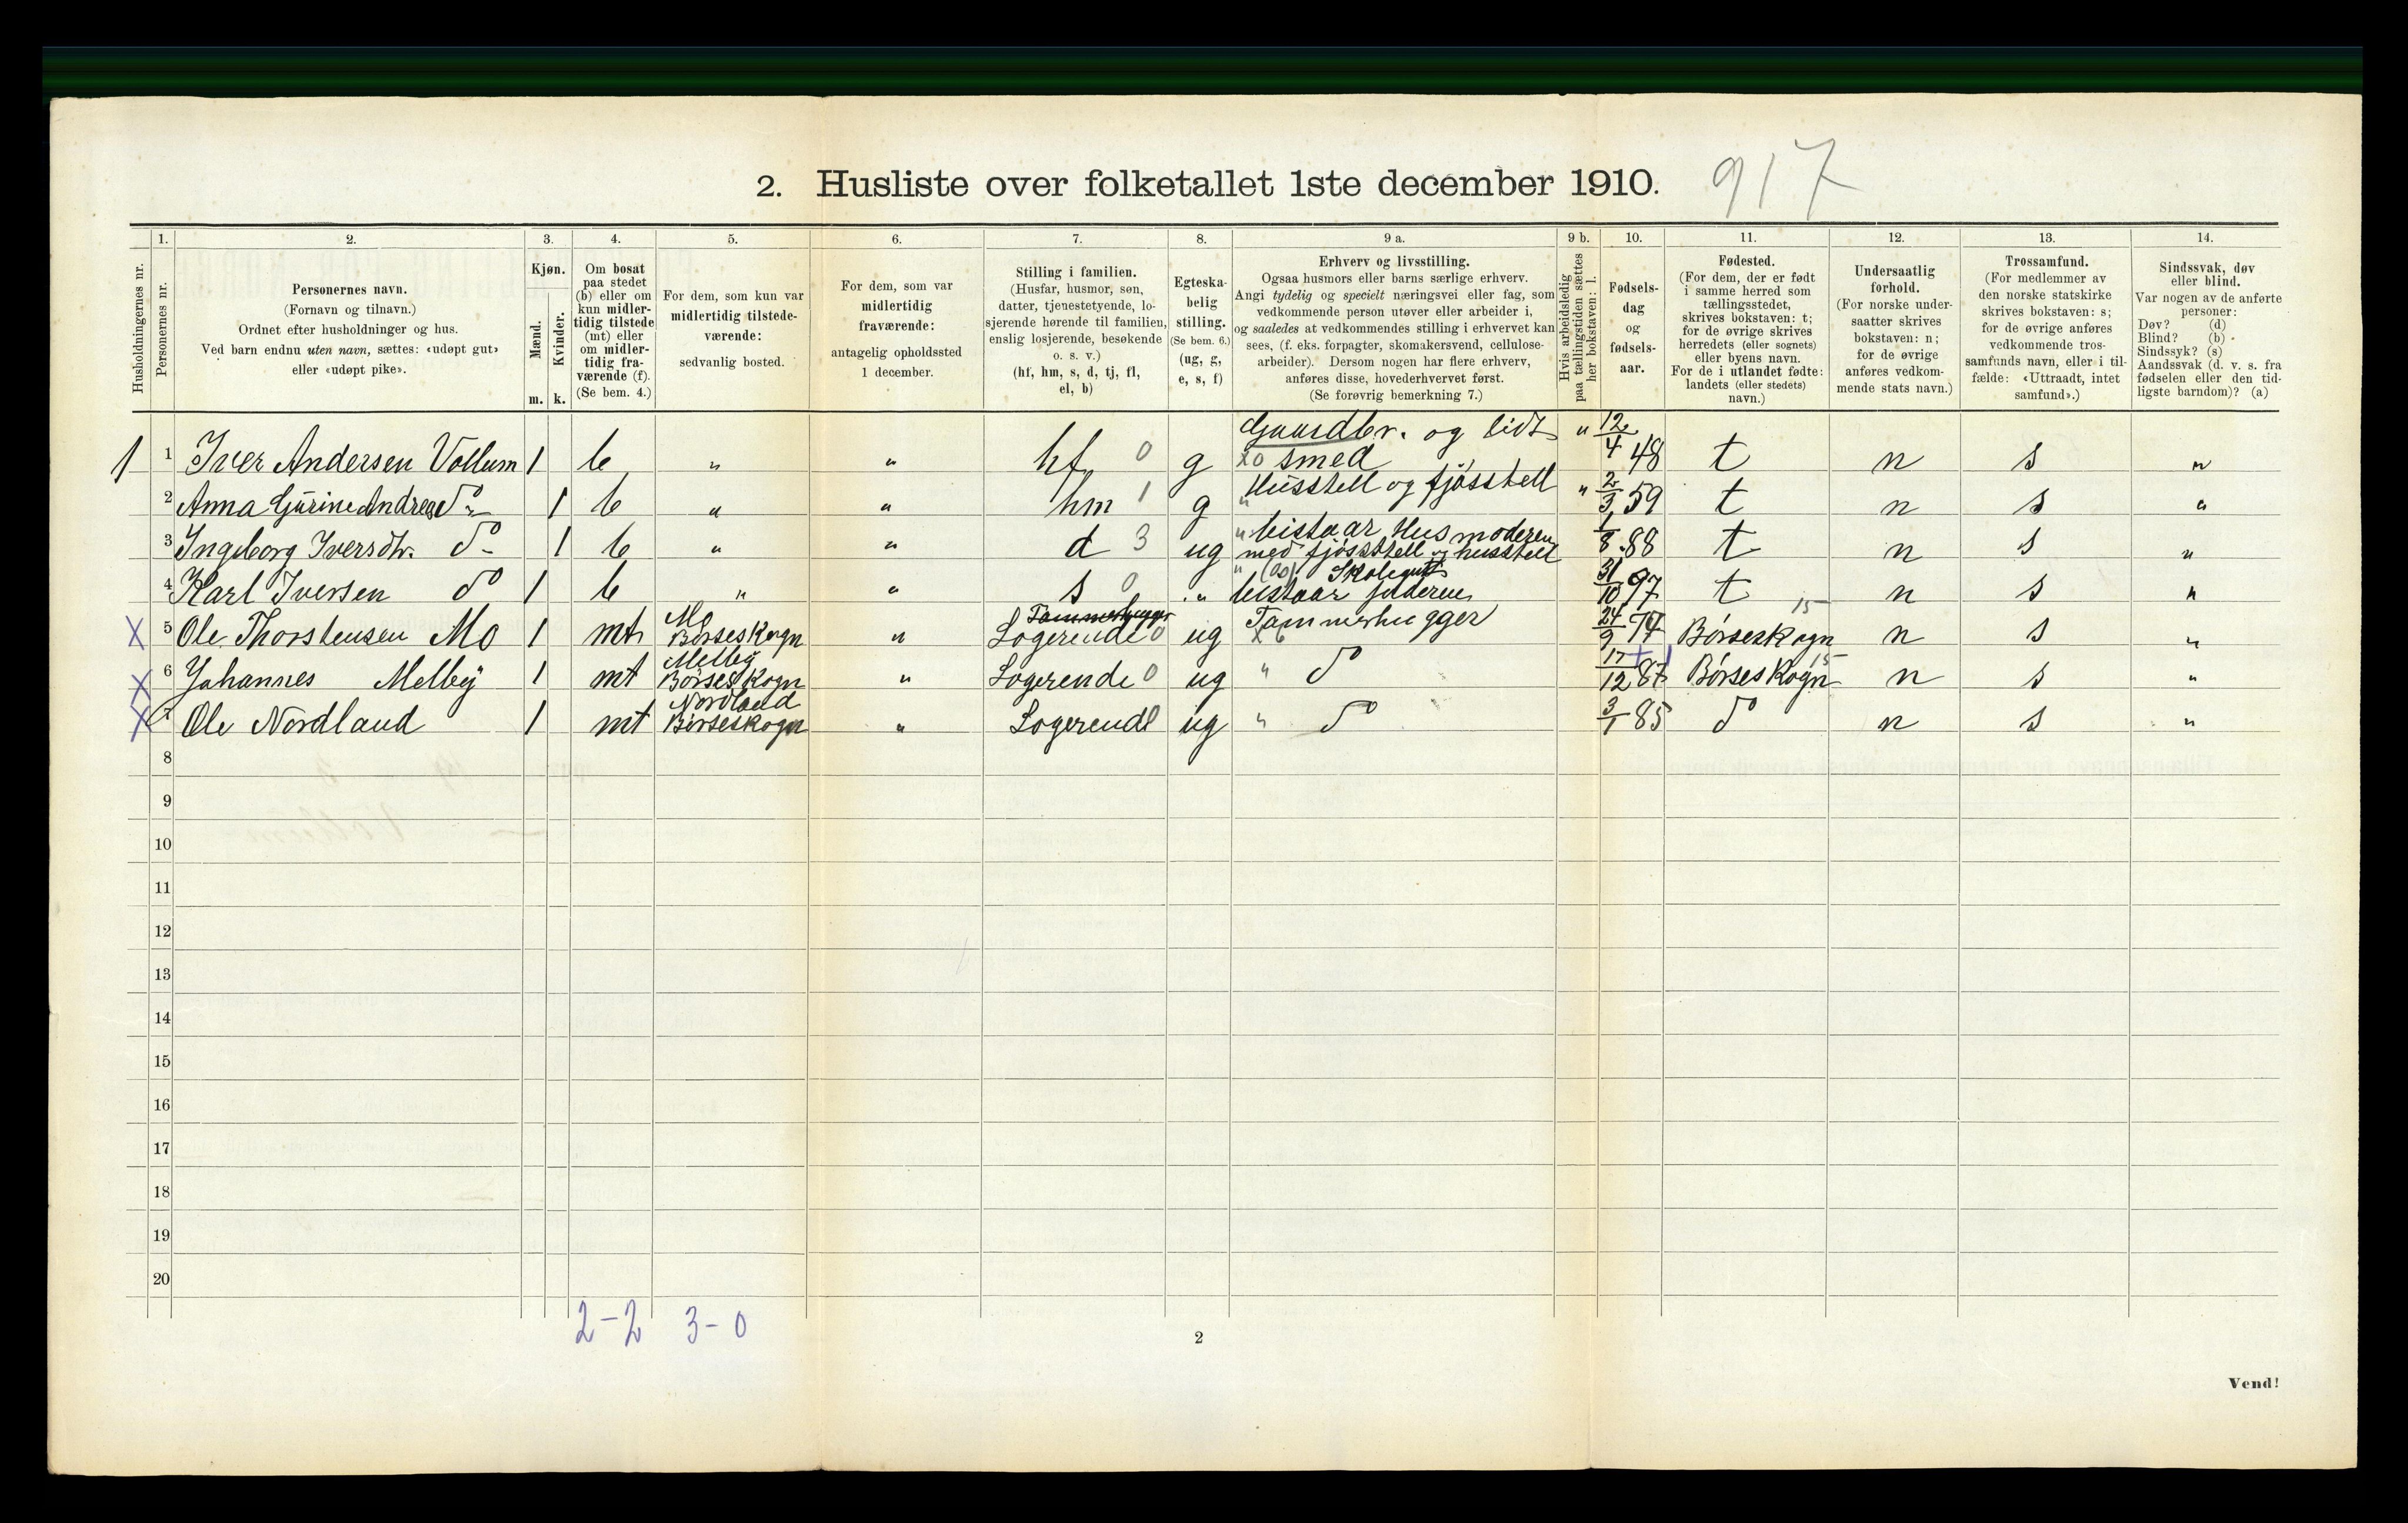 2. Husliste over folketallet 1ste december 1910. 917
Husholdningernes nr.
1. Personernes nr.
2. Personernes navn.
(Fornavn og tilnavn.)
Ordnet efter husholdninger og hus.
Ved barn endnu uten navn, sættes: «udøpt gut»
eller «udøpt pike».
3. Kjøn.
Mænd. Kvinder.
m. k.
4. Om bosat
paa stedet
(b) eller om
kun midler-
tidig tilstede
(mt) eller
om midler-
tidig fra-
værende (f).
(Se bem. 4.)
5. For dem, som kun var
midlertidig tilstede-
værende:
sedvanlig bosted.
6. For dem, som var
midlertidig
fraværende:
antagelig opholdssted
1 december.
7. Stilling i familien.
(Husfar, husmor, søn,
datter, tjenestetyende, lo-
sjerende hørende til familien,
enslig losjerende, besøkende
o. s. v.)
(hf, hm, s, d, tj, fl,
el, b)
8. Egteska-
belig
stilling.
(Se bem. 6.)
(ug, g,
e, s, f)
9 a. Erhverv og livsstilling.
Ogsaa husmors eller barns særlige erhverv.
Angi tydelig og specielt næringsvei eller fag, som
vedkommende person utøver eller arbeider i,
og saaledes at vedkommendes stilling i erhvervet kan
sees, (f. eks. forpagter, skomakersvend, cellulose-
arbeider). Dersom nogen har flere erhverv,
anføres disse, hovederhvervet først.
(Se forøvrig bemerkning 7.)
9 b. Hvis arbeidsledig
paa tællingstiden sættes
her bokstaven: l.
10. Fødsels-
dag
og
fødsels-
aar.
11. Fødested.
(For dem, der er født
i samme herred som
tællingsstedet,
skrives bokstaven: t;
for de øvrige skrives
herredets (eller sognets)
eller byens navn.
For de i utlandet fødte:
landets (eller stedets)
navn.)
12. Undersaatlig
forhold.
(For norske under-
saatter skrives
bokstaven: n;
for de øvrige
anføres vedkom-
mende stats navn.)
13. Trossamfund.
(For medlemmer av
den norske statskirke
skrives bokstaven: s;
for de øvrige anføres
vedkommende tros-
samfunds navn, eller i til-
fælde: «Uttraadt, intet
samfund».)
14. Sindssvak, døv
eller blind.
Var nogen av de anførte
personer:
Døv? (d)
Blind? (b)
Sindssyk? (s)
Aandssvak (d. v. s. fra
fødselen eller den tid-
ligste barndom)? (a)
1 1 Iver Andersen Vollum 1 b " " hf 0 g Gaardbr. og lidt smed x0 " 12/4 48 t n s "
2 Anna Gurine Andreas do 1 b " " hm 1 g " Husstell og fjøsstell " 2/3 59 t n s "
3 Ingeborg Iversdtr. do 1 b " " d 3 ug " bistaar Husmoderen med fjøsstell og husstell 1/8 88 t n s "
4 Karl Iversen do 1 b " " s 0 " " Skolegut bistaar faderen 31/10 97 t n s "
X 5 Ole Thorstensen Mo 1 mt Mo Børseskogn " Tømmerhugger Logerende 0 ug Tømmerhugger x6 24/9 94 Børseskogn 15 n s "
X 6 Johannes Melby 1 mt Melby Børseskogn " Logerende 0 ug " do 17/12 87 Børseskogn 15 n s "
X 7 Ole Nordland 1 mt Nordland Børseskogn " Logerende ug " do 3/1 85 do n s "
8
9
10
11
12
13
14
15
16
17
18
19
20
2-2 3-0
2
Vend!